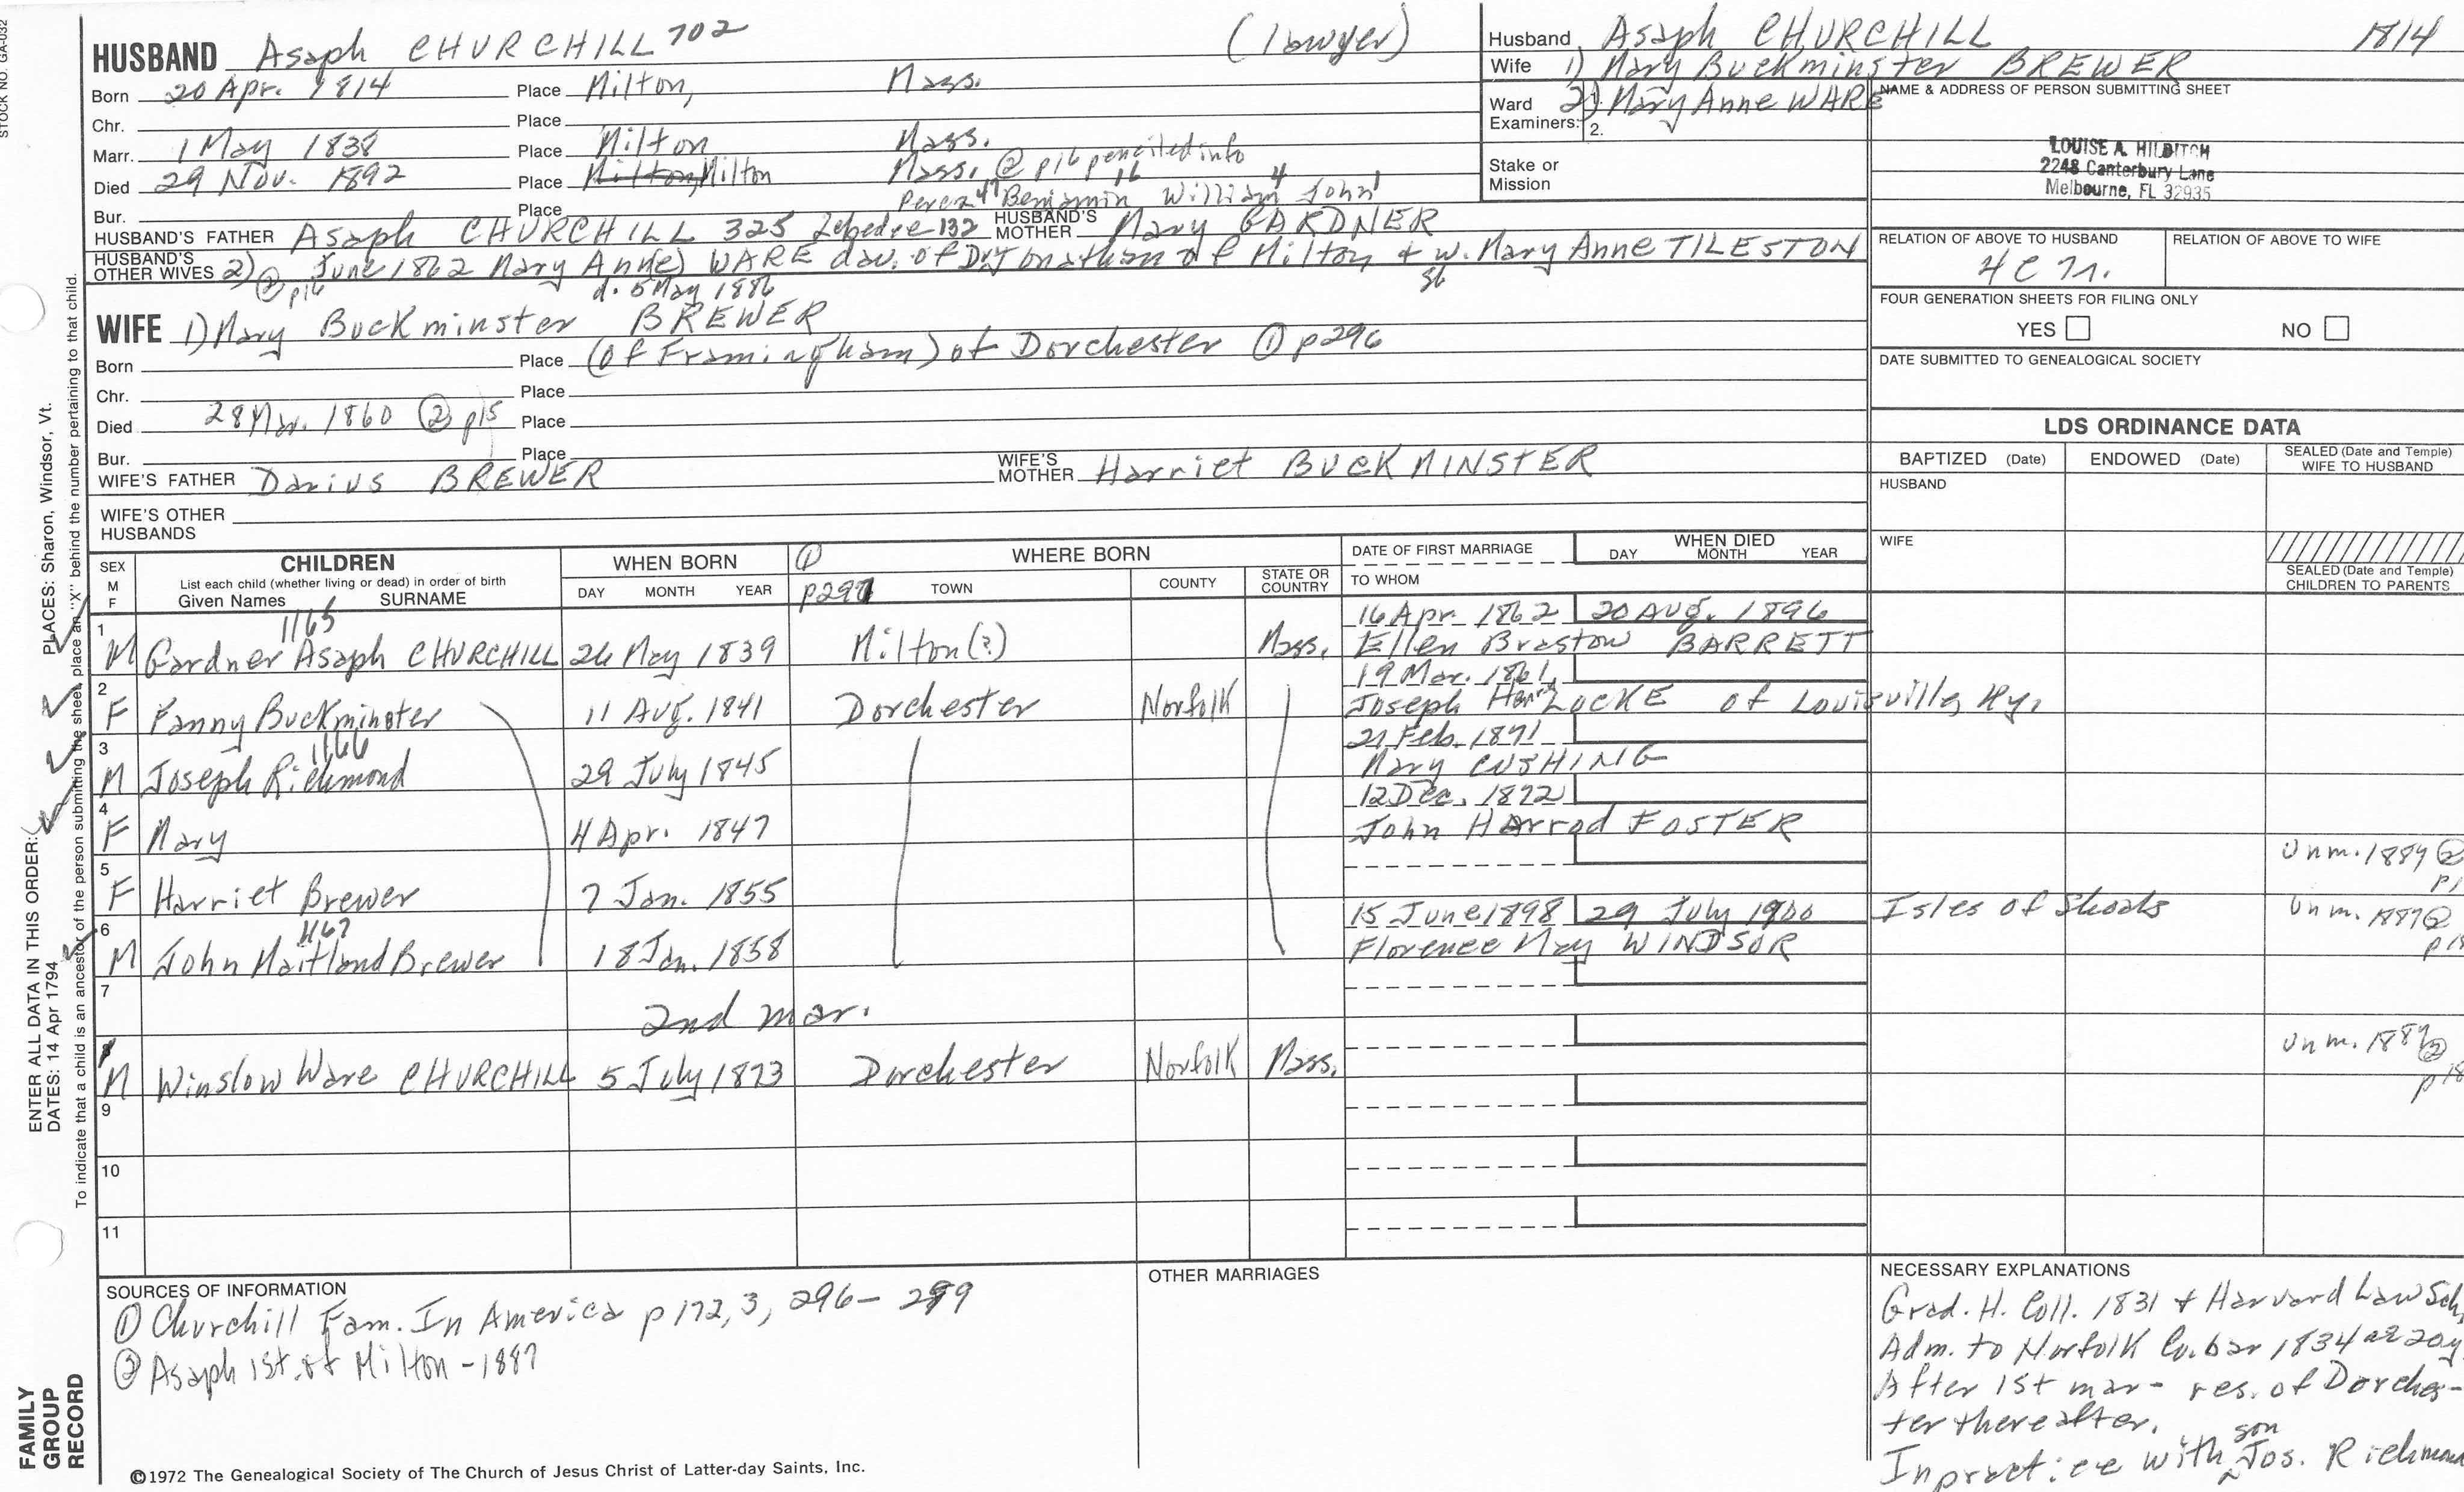 STOCK NO. GA-032
HUSBAND Asaph CHURCHILL 702 (lawyer)
Born 20 Apr. 1814 Place Milton, Mass.
Chr. Place
Marr. 1 May 1838 Place Milton Mass.
Died 29 Nov. 1892 Place Milton, Milton Mass. @ p16 penciled info
Bur. Place Perez 47 Benjamin 16 William 4 John 1
HUSBAND'S FATHER Asaph CHURCHILL 325 Zebedee 132 HUSBAND'S MOTHER Mary GARDNER
HUSBAND'S OTHER WIVES 2) @ p16 June 1862 Mary Ann(e) WARE dau. of Dr. Jonathan of Milton & w. Mary Anne TILESTON
d. 5 May 1886
WIFE 1) Mary Buckminster BREWER
Born Place (of Framingham) of Dorchester ① p296
Chr. Place
Died 28 Mar. 1860 ② p15 Place
Bur. Place
WIFE'S FATHER Darius BREWER WIFE'S MOTHER Harriet BUCKMINSTER
WIFE'S OTHER HUSBANDS
Husband Asaph CHURCHILL 1814
Wife 1) Mary Buckminster BREWER
Ward Examiners: 1. 2) Mary Anne WARE
2.
Stake or Mission
NAME & ADDRESS OF PERSON SUBMITTING SHEET
LOUISE A. HILDITCH
2248 Canterbury Lane
Melbourne, FL 32935
RELATION OF ABOVE TO HUSBAND RELATION OF ABOVE TO WIFE
4C
FOUR GENERATION SHEETS FOR FILING ONLY
YES NO
DATE SUBMITTED TO GENEALOGICAL SOCIETY
LDS ORDINANCE DATA
BAPTIZED (Date) ENDOWED (Date) SEALED (Date and Temple) WIFE TO HUSBAND
HUSBAND
WIFE
SEALED (Date and Temple) CHILDREN TO PARENTS
SEX M F
CHILDREN
List each child (whether living or dead) in order of birth
Given Names SURNAME
WHEN BORN
DAY MONTH YEAR
① p297 WHERE BORN
TOWN COUNTY STATE OR COUNTRY
DATE OF FIRST MARRIAGE
TO WHOM
WHEN DIED
DAY MONTH YEAR
1 M Gardner Asaph CHURCHILL 1165 26 May 1839 Milton(?) Mass. 16 Apr. 1862 20 Aug. 1896
Ellen Brastow BARRETT
2 F Fanny Buckminster 11 Aug. 1841 Dorchester Norfolk 19 Mar. 1861
Joseph Harry LOCKE of Louisville, Ky.
3 M Joseph Richmond 1166 29 July 1845 21 Feb. 1871
Mary CUSHING
4 F Mary 4 Apr. 1847 12 Dec. 1872
John Harrod FOSTER
5 F Harriet Brewer 7 Jan. 1855 Unm. 1889 ②
6 M John Maitland Brewer 1167 18 Jan. 1858 15 June 1898 29 July 1900 Isles of Shoals Unm. 1887 ②
Florence May WINDSOR
7 2nd mar.
8 M Winslow Ware CHURCHILL 5 July 1873 Dorchester Norfolk Mass. Unm. 1887 ② p18
9
10
11
SOURCES OF INFORMATION
① Churchill Fam. In America p 172, 3, 296 - 299
② Asaph 1st. of Milton - 1887
OTHER MARRIAGES
NECESSARY EXPLANATIONS
Grad. H. Coll. 1831 & Harvard Law Sch.
Adm. to Norfolk Co. bar 1834 ae 20y
After 1st mar - res. of Dorches-
ter thereafter.
In practice with son Jos. Richmond
©1972 The Genealogical Society of The Church of Jesus Christ of Latter-day Saints, Inc.
FAMILY GROUP RECORD
ENTER ALL DATA IN THIS ORDER:
DATES: 14 Apr 1794
PLACES: Sharon, Windsor, Vt.
To indicate that a child is an ancestor of the person submitting the sheet, place an "X" behind the number pertaining to that child.